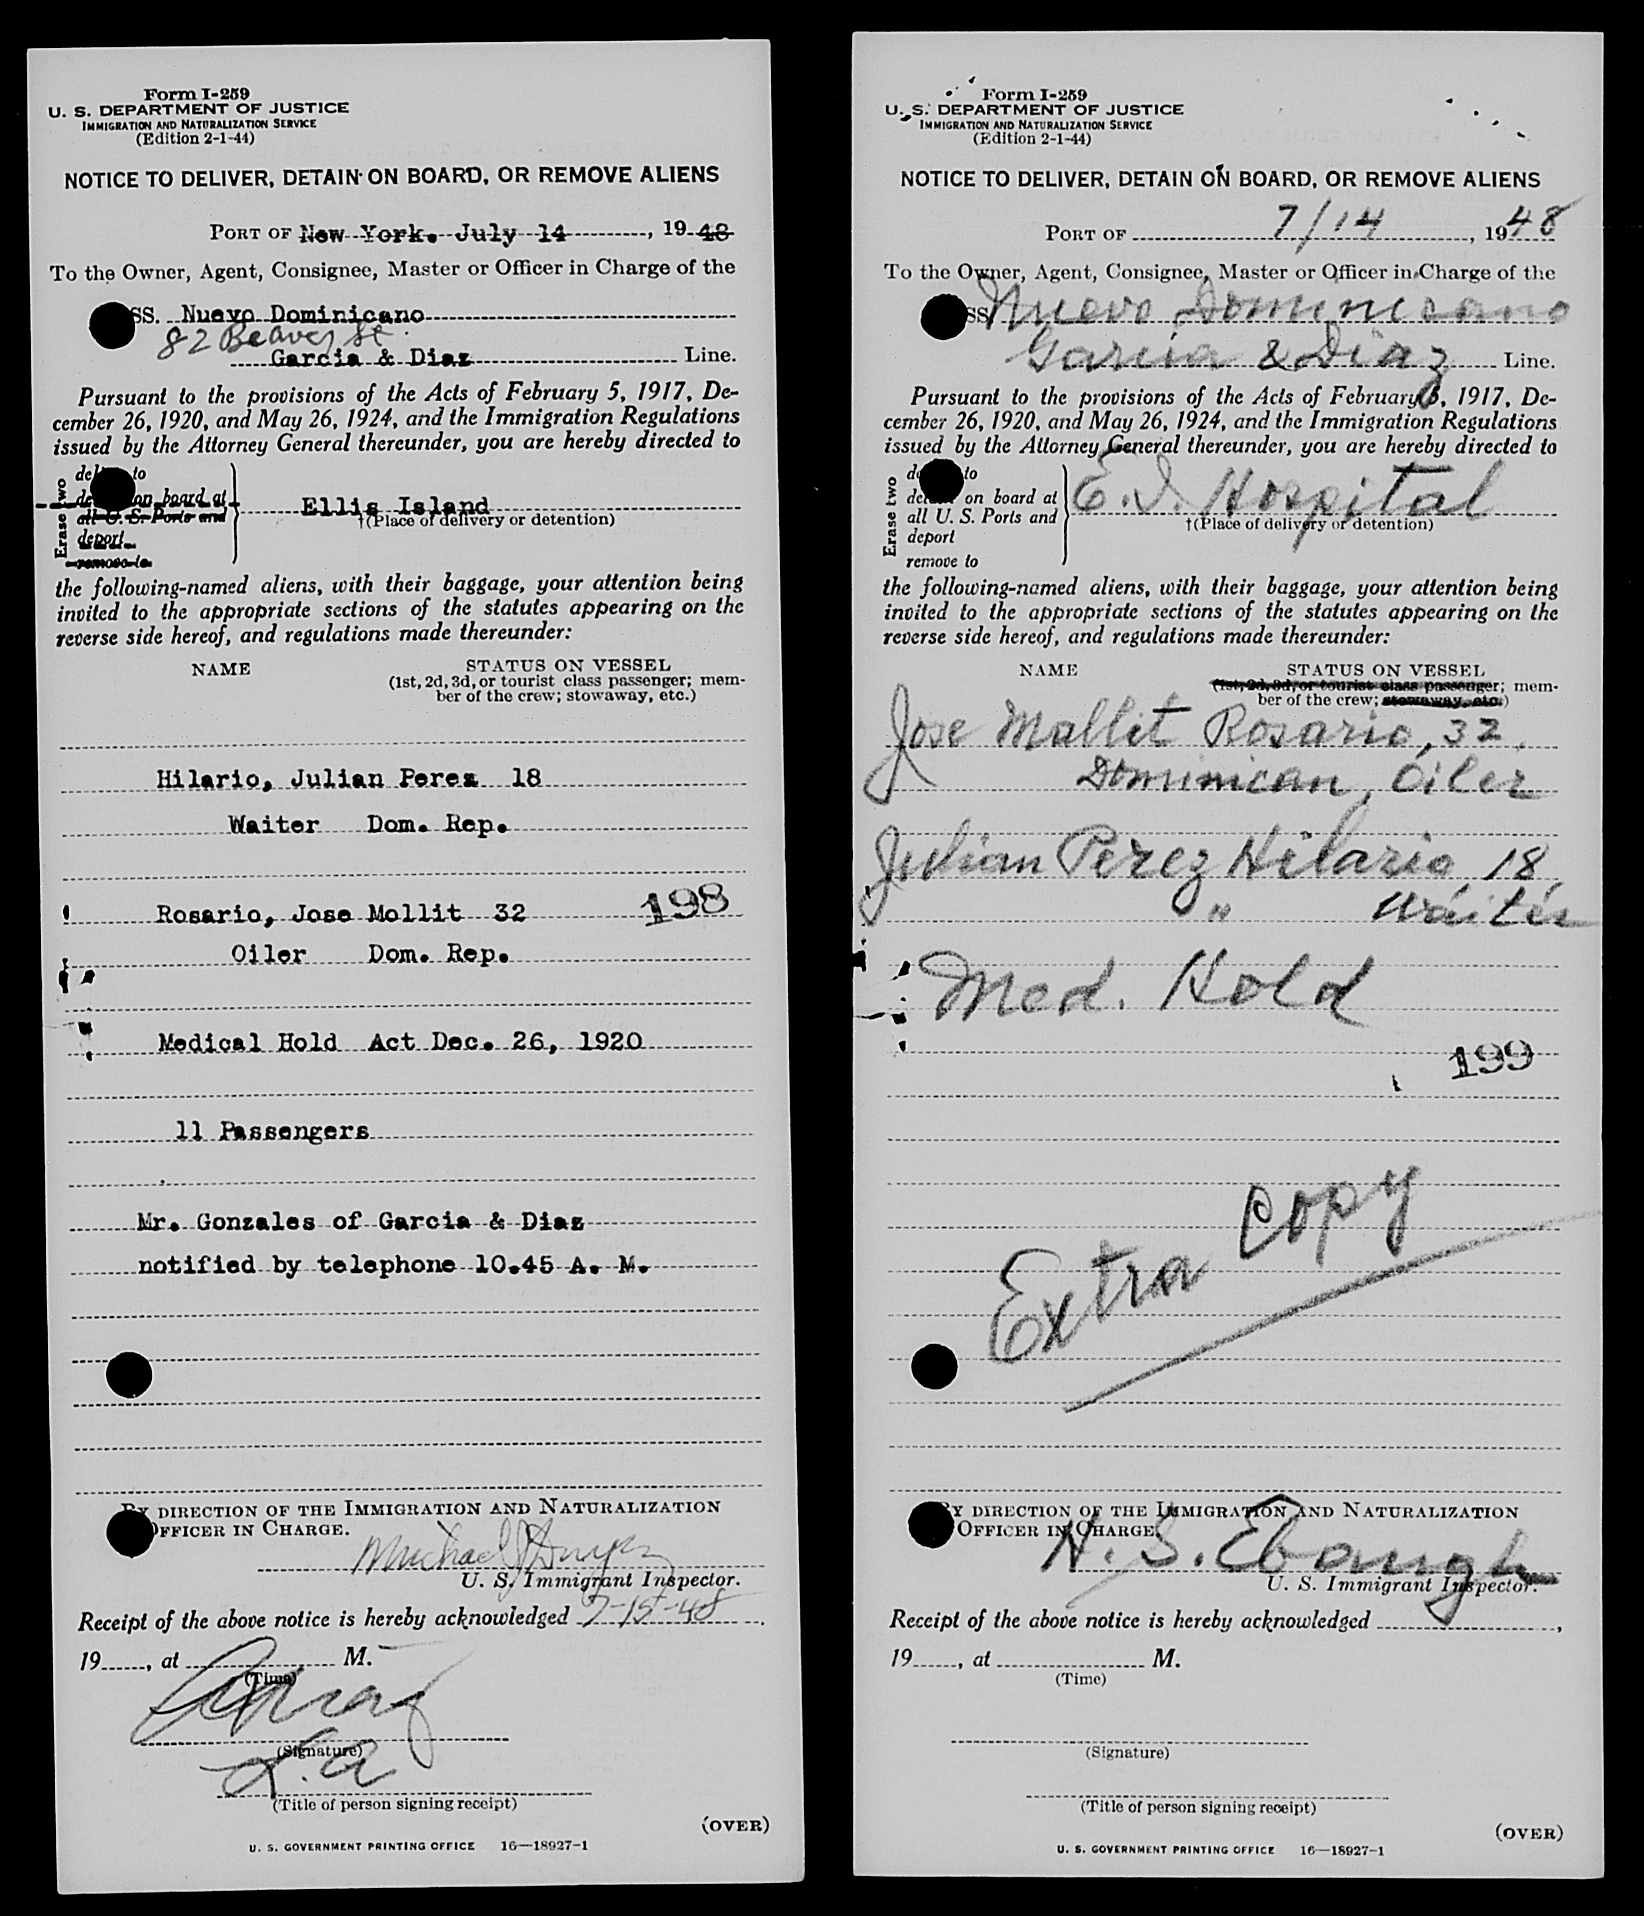 Form I-259
U. S. DEPARTMENT OF JUSTICE
IMMIGRATION AND NATURALIZATION SERVICE
(Edition 2-1-44)
NOTICE TO DELIVER, DETAIN ON BOARD, OR REMOVE ALIENS
PORT OF New York. July 14, 19 48
To the Owner, Agent, Consignee, Master or Officer in Charge of the
SS. Nuevo Dominicano
82 Beaver St.
Garcia & Diaz Line.
Pursuant to the provisions of the Acts of February 5, 1917, De-
cember 26, 1920, and May 26, 1924, and the Immigration Regulations
issued by the Attorney General thereunder, you are hereby directed to
Erase two
to
on board at
all U. S. Ports and
deport
remove to
Ellis Island
†(Place of delivery or detention)
the following-named aliens, with their baggage, your attention being
invited to the appropriate sections of the statutes appearing on the
reverse side hereof, and regulations made thereunder:
NAME STATUS ON VESSEL
(1st, 2d, 3d, or tourist class passenger; mem-
ber of the crew; stowaway, etc.)
Hilario, Julian Perez 18
Waiter Dom. Rep.
Rosario, Jose Mollit 32 198
Oiler Dom. Rep.
Medical Hold Act Dec. 26, 1920
11 Passengers
Mr. Gonzales of Garcia & Diaz
notified by telephone 10.45 A. M.
BY DIRECTION OF THE IMMIGRATION AND NATURALIZATION
OFFICER IN CHARGE.
Michael J Dwyer
U. S. Immigrant Inspector.
Receipt of the above notice is hereby acknowledged 7-15-48.
19, at M.
(Time)
(Signature)
(Title of person signing receipt)
(OVER)
U. S. GOVERNMENT PRINTING OFFICE 16—18927-1
Form I-259
U. S. DEPARTMENT OF JUSTICE
IMMIGRATION AND NATURALIZATION SERVICE
(Edition 2-1-44)
NOTICE TO DELIVER, DETAIN ON BOARD, OR REMOVE ALIENS
PORT OF 7/14, 1948
To the Owner, Agent, Consignee, Master or Officer in Charge of the
SS Nuevo Dominicano
Garcia & Diaz Line.
Pursuant to the provisions of the Acts of February 5, 1917, De-
cember 26, 1920, and May 26, 1924, and the Immigration Regulations
issued by the Attorney General thereunder, you are hereby directed to
Erase two
to
on board at
all U. S. Ports and
deport
remove to
E.I. Hospital
†(Place of delivery or detention)
the following-named aliens, with their baggage, your attention being
invited to the appropriate sections of the statutes appearing on the
reverse side hereof, and regulations made thereunder:
NAME STATUS ON VESSEL
(1st, 2d, 3d, or tourist class passenger; mem-
ber of the crew; stowaway, etc.)
Jose Mallit Rosario, 32,
Dominican, Oiler
Julian Perez Hilario 18,
" Waiter
Med. Hold
199
Extra Copy
BY DIRECTION OF THE IMMIGRATION AND NATURALIZATION
OFFICER IN CHARGE.
H. S. Ebaugh
U. S. Immigrant Inspector.
Receipt of the above notice is hereby acknowledged,
19, at M.
(Time)
(Signature)
(Title of person signing receipt)
(OVER)
U. S. GOVERNMENT PRINTING OFFICE 16—18927-1